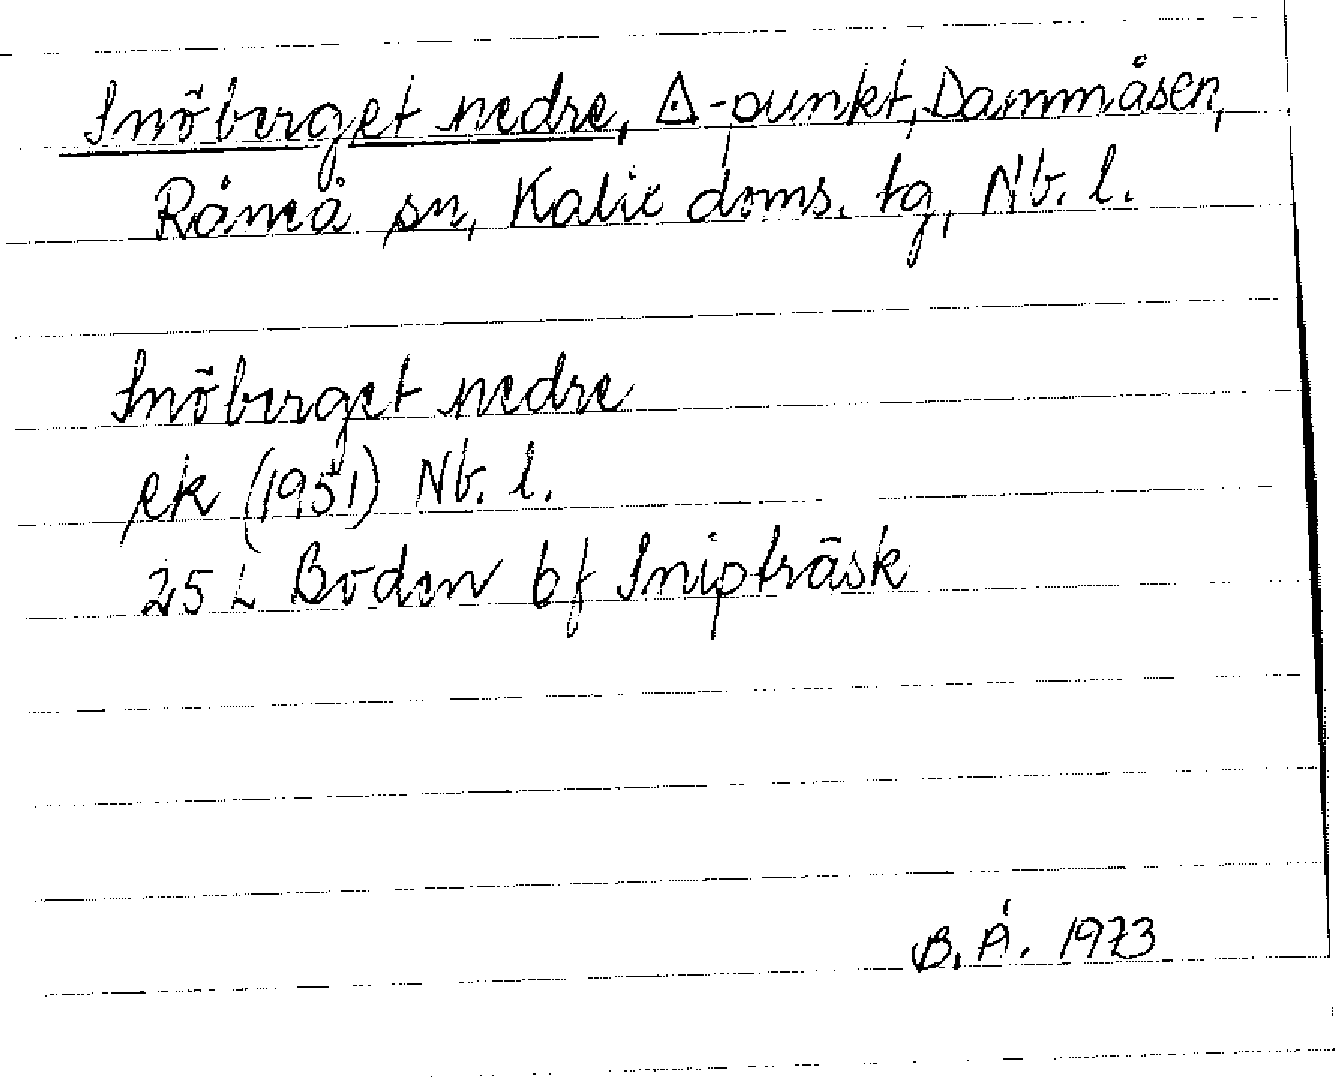 Snöberget nedre, ◬-punkt, Dammåsen,
Råneå sn, Kalix doms. tg, Nb. l.
Snöberget nedre
ek (1951) Nb. l.
25 L Boden 6f Snipträsk
B.Å. 1973